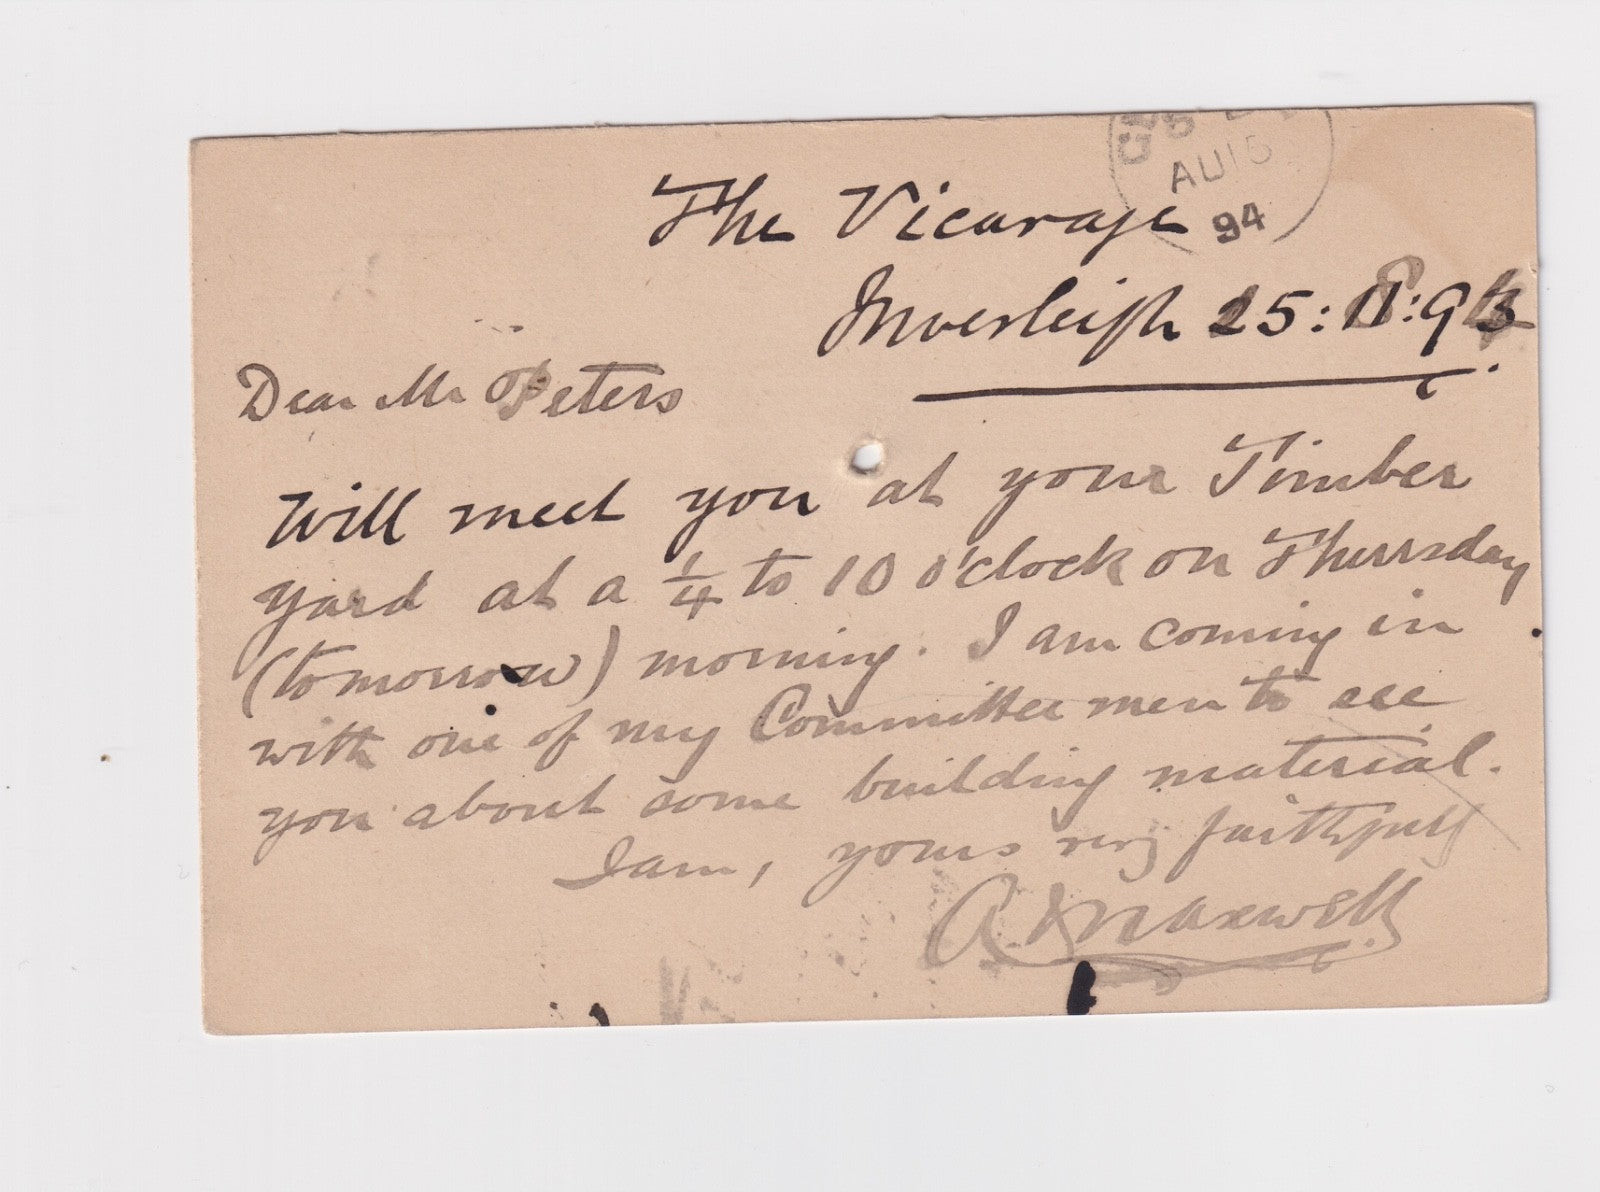 AU 15
94
The Vicarage
Inverleigh 15: 8: 94
Dear Mr Peters
Will meet you at your Timber
yard at a 1/4 to 10 o'clock on Thursday
(tomorrow) morning. I am coming in
with one of my Committee men to see
you about some building material.
I am, yours very faithfully
Maxwell